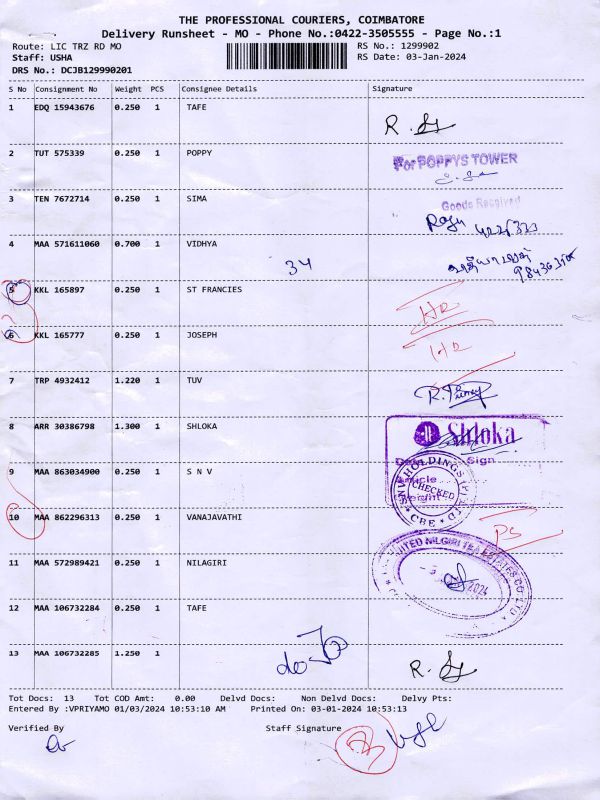 THE PROFESSIONAL COURIERS, COIMBATORE
Delivery Runsheet - MO - Phone No.:0422-3505555 - Page No.:1
Route: LIC TRZ RD MO RS No.: 1299902
Staff: USHA RS Date: 03-Jan-2024
DRS No.: DCJB129990201
S No Consignment No Weight PCS Consignee Details Signature
1 EDQ 15943676 0.250 1 TAFE
R.
2 TUT 575339 0.250 1 POPPY
For POPPYS TOWER
3 TEN 7672714 0.250 1 SIMA
Goods Received
Raju
4 MAA 571611060 0.700 1 VIDHYA
34
5 KKL 165897 0.250 1 ST FRANCIES
6 KKL 165777 0.250 1 JOSEPH
7 TRP 4932412 1.220 1 TUV
8 ARR 30386798 1.300 1 SHLOKA
Shloka
Sign
9 MAA 863034900 0.250 1 S N V
SNV HOLDINGS
CHECKED
CBE
10 MAA 862296313 0.250 1 VANAJAVATHI
PS
11 MAA 572989421 0.250 1 NILAGIRI
UNITED NILGIRI TEA ESTATES CO LTD
2024
12 MAA 106732284 0.250 1 TAFE
do
13 MAA 106732285 1.250 1
R.
Tot Docs: 13 Tot COD Amt: 0.00 Delvd Docs: Non Delvd Docs: Delvy Pts:
Entered By :VPRIYAMO 01/03/2024 10:53:10 AM Printed On: 03-01-2024 10:53:13
Verified By Staff Signature